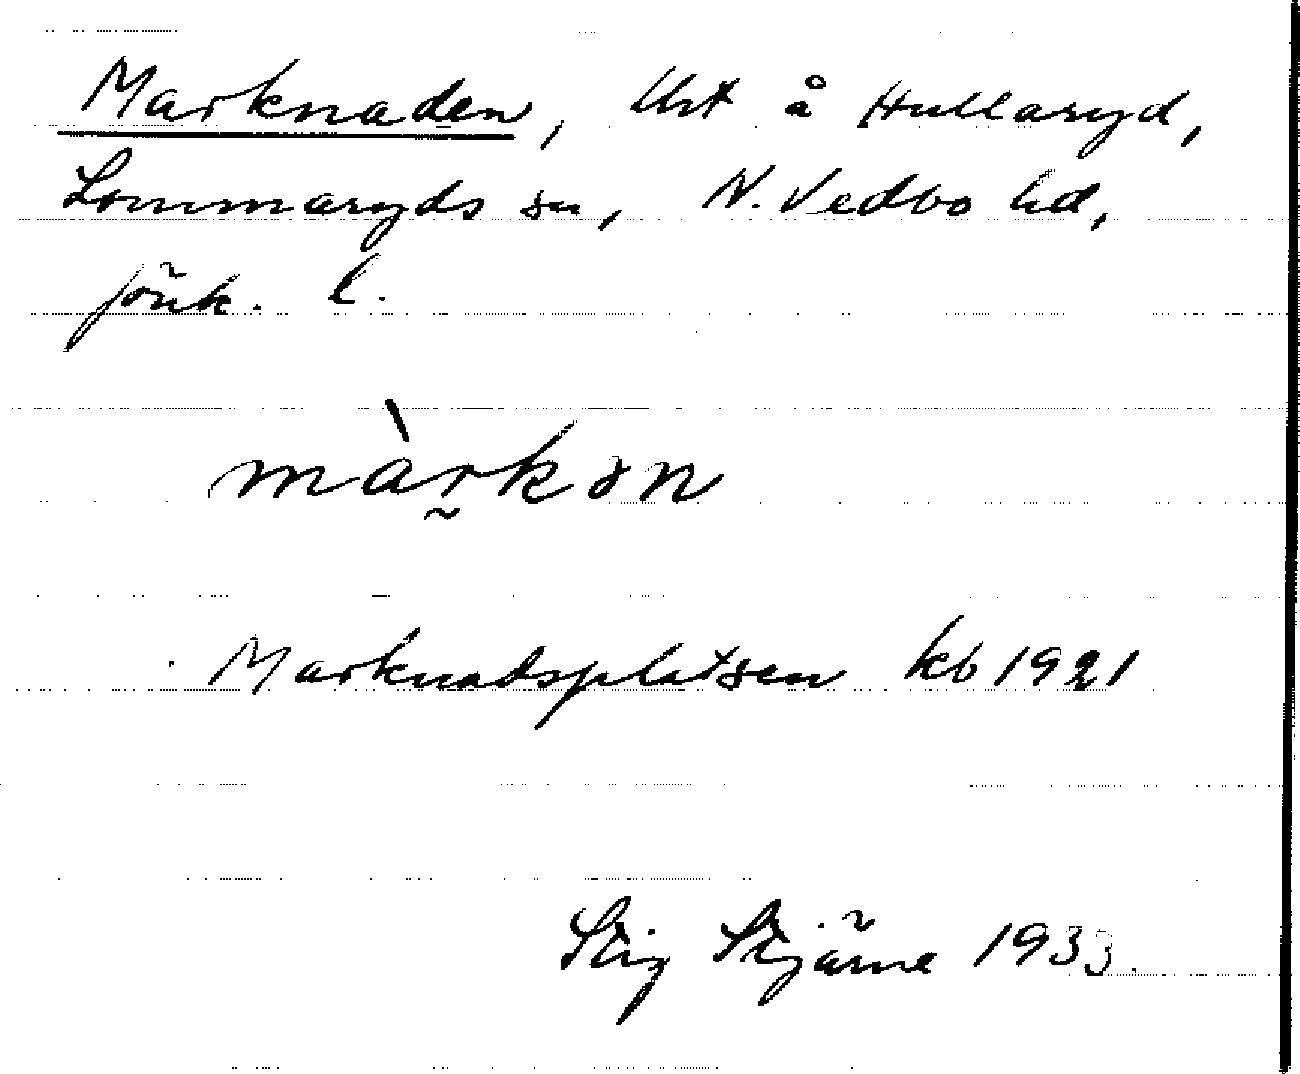 Marknaden, Urt å Hullaryd,
Lommaryds sn, N. Vedbo hd,
Jönk. l.
màr̰kən
Marknadsplatsen kb 1921
Stig Stjärne 1933.